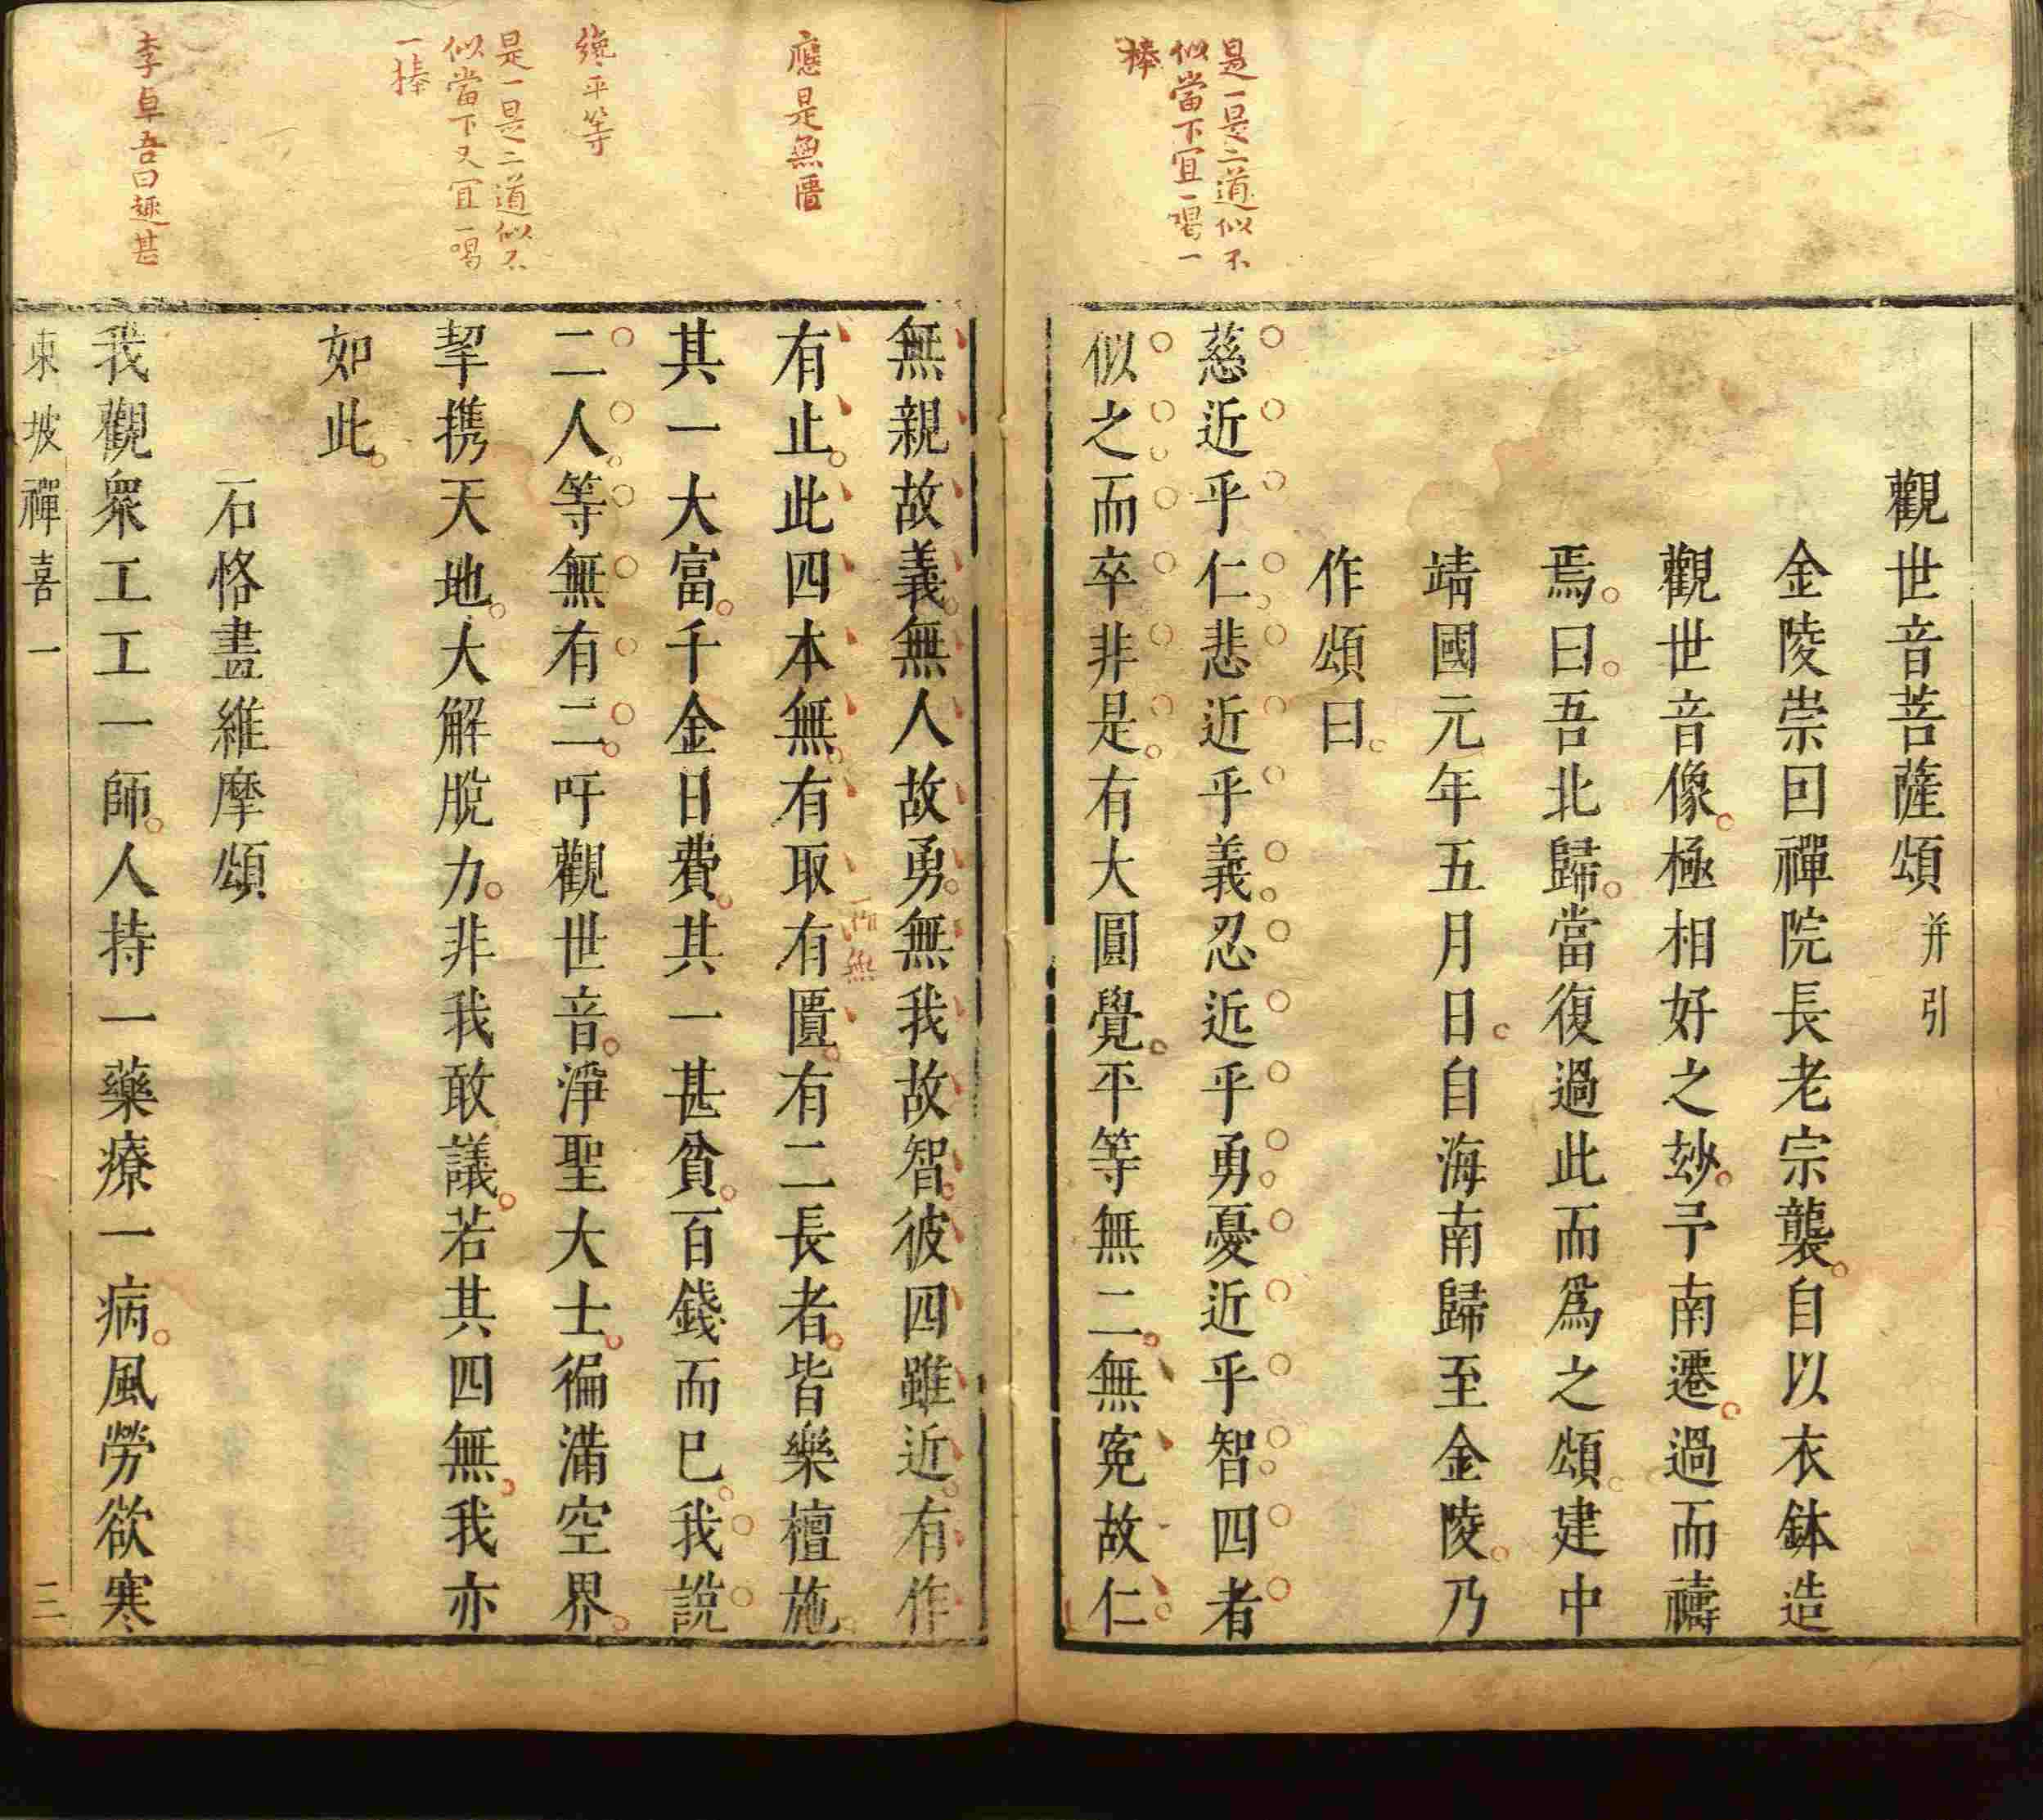 觀世音菩薩頌并引
金陵崇因禪院長老宗襲自以衣鉢造
觀世音像極相好之玅予南遷過而禱
焉曰吾北歸當復過此而爲之頌建中
靖國元年五月日自海南歸至金陵乃
作頌曰
慈近乎仁悲近乎義忍近乎勇憂近乎智四者
似之而卒非是有大圓覺平等無二無寃故仁
無親故義無人故勇無我故智彼四雖近有作
有止此四本無有取有匱有二長者皆樂檀施
其一大富千金日費其一甚貧百錢而已我說
二人等無有二吁觀世音淨聖大士徧滿空界
挈携天地大解脫力非我敢議若其四無我亦
如此
石恪畫維摩頌
我觀衆工工一師人持一藥療一病風勞欲寒
東坡禪喜一
三
是一是二道似不
似當下宜一喝一
棒
應是無匱
纔平等
是一是二道似不
似當下又宜一喝
一棒
李卓吾曰趣甚